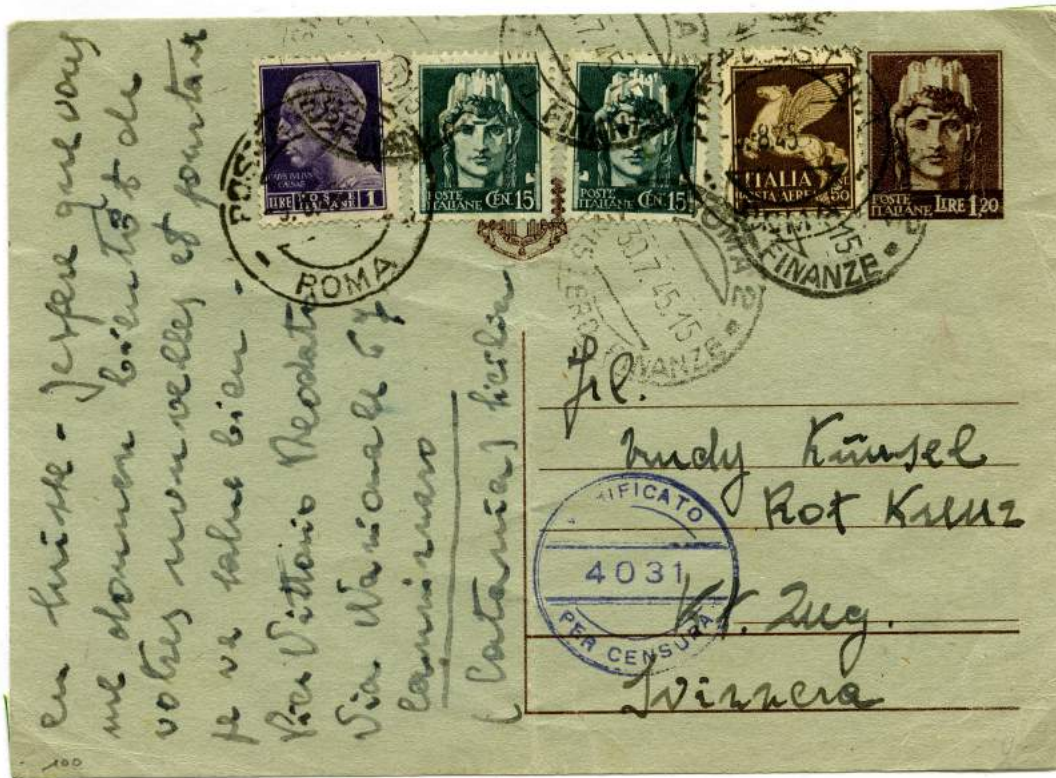 en Suisse - J'espère que vous
me donnere bientôt de
votres nouvelles et pourtant
je ve salue bien -
Pici Vittorio Deodato
Via Nazionale 67
Cannizzaro
(Catania) Sicilia
LIRE POSTE ITALIANE 1
POSTE ITALIANE CEN. 15
POSTE ITALIANE CEN. 15
ITALIA
POSTA AEREA 50
POSTE ITALIANE LIRE 1,20
ROMA
30.7.45.15
FINANZE
ROMA 2
FINANZE
Frl.
Trudy Künsel
Rot Kreuz
Kt. Zug.
Svizzera
VERIFICATO
4031
PER CENSURA
100